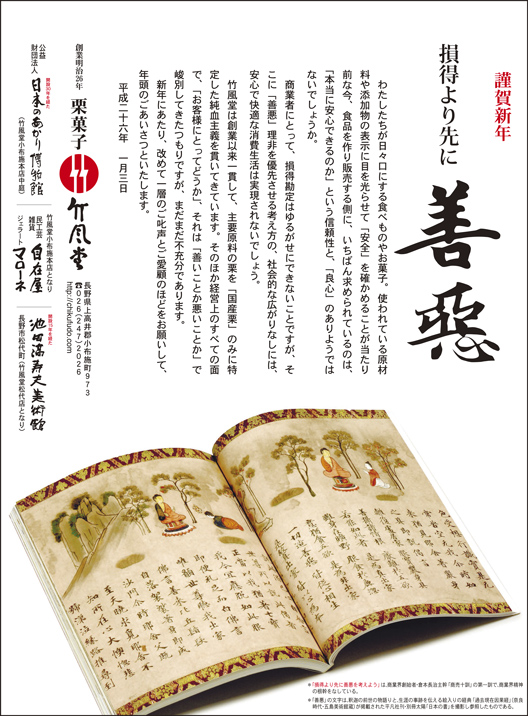 謹賀新年
損得より先に
善悪
わたしたちが日々口にする食べものやお菓子。使われている原材
料や添加物の表示に目を光らせて「安全」を確かめることが当たり
前な今、食品を作り販売する側に、いちばん求められているのは、
「本当に安心できるのか」という信頼性と、「良心」のありようでは
ないでしょうか。
商業者にとって、損得勘定はゆるがせにできないことですが、そ
こに「善悪」理非を優先させる考え方の、社会的な広がりなしには、
安心で快適な消費生活は実現されないでしょう。
竹風堂は創業以来一貫して、主要原料の栗を「国産栗」のみに特
定した純血主義を貫いてきています。そのほか経営上のすべての面
で、「お客様にとってどうか」、それは「善いことか悪いことか」で
峻別してきたつもりですが、まだまだ不充分であります。
新年にあたり、改めて一層のご叱声とご愛顧のほどをお願いして、
年頭のごあいさつといたします。
平成二十六年 一月三日
創業明治26年
栗菓子
竹風堂
長野県上高井郡小布施町973
☎026(247)2026
http://chikufudo.com
公益
財団法人
開設30年を超えた
日本のあかり博物館
(竹風堂小布施本店中庭)
竹風堂小布施本店となり
民工芸
雑貨
自在屋
ジェラート
マローネ
開館15年を超えた
池田満寿夫美術館
長野市松代町(竹風堂松代店となり)
*「損得より先に善悪を考えよう」は、商業界創始者・倉本長治主幹「商売十訓」の第一訓で、商業界精神
の根幹をなしている。
*「善悪」の文字は、釈迦の前世の物語りと、生涯の事跡を伝える絵入りの経典「過去現在因果経」(奈良
時代・五島美術館蔵)が掲載された平凡社刊・別冊太陽「日本の書」を撮影し参照したものである。